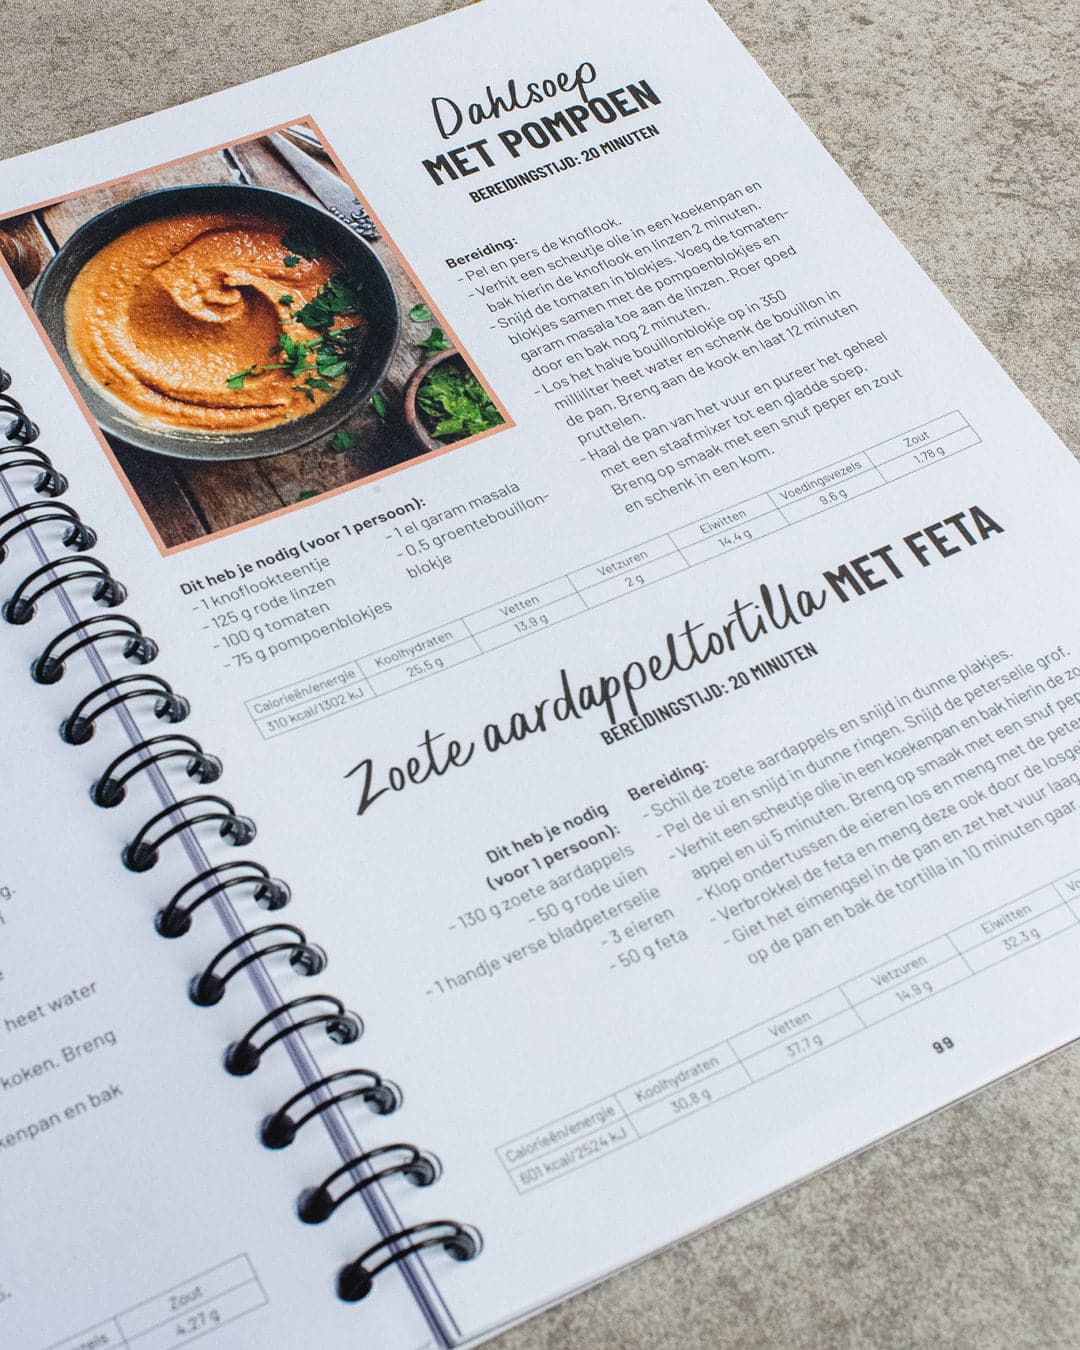 Dahlsoep
MET POMPOEN
BEREIDINGSTIJD: 20 MINUTEN
Bereiding:
- Pel en pers de knoflook.
- Verhit een scheutje olie in een koekenpan en
bak hierin de knoflook en linzen 2 minuten.
- Snijd de tomaten in blokjes. Voeg de tomaten-
blokjes samen met de pompoenblokjes en
garam masala toe aan de linzen. Roer goed
door en bak nog 2 minuten.
- Los het halve bouillonblokje op in 350
milliliter heet water en schenk de bouillon in
de pan. Breng aan de kook en laat 12 minuten
pruttelen.
- Haal de pan van het vuur en pureer het geheel
met een staafmixer tot een gladde soep.
Breng op smaak met een snuf peper en zout
en schenk in een kom.
Dit heb je nodig (voor 1 persoon):
- 1 knoflookteentje
- 125 g rode linzen
- 100 g tomaten
- 75 g pompoenblokjes
- 1 el garam masala
- 0,5 groentebouillon-
blokje
Calorieën/energie Koolhydraten Vetten Vetzuren Eiwitten Voedingsvezels Zout
310 kcal/1302 kJ 25.5 g 13.9 g 2 g 14.4 g 9.6 g 1,78 g
Zoete aardappeltortilla MET FETA
BEREIDINGSTIJD: 20 MINUTEN
Dit heb je nodig
(voor 1 persoon):
- 130 g zoete aardappels
- 50 g rode uien
- 1 handje verse bladpeterselie
- 3 eieren
- 50 g feta
Bereiding:
- Schil de zoete aardappels en snijd in dunne plakjes.
- Pel de ui en snijd in dunne ringen. Snijd de peterselie grof.
- Verhit een scheutje olie in een koekenpan en bak hierin de zo
appel en ui 5 minuten. Breng op smaak met een snuf pep
- Klop ondertussen de eieren los en meng met de peter
- Verbrokkel de feta en meng deze ook door de losge
- Giet het eimengsel in de pan en zet het vuur laag
op de pan en bak de tortilla in 10 minuten gaar
Calorieën/energie Koolhydraten Vetten Vetzuren Eiwitten
601 kcal/2524 kJ 30.8 g 37.7 g 14.9 g 32.3 g
99
g.
heet water
koken. Breng
kenpan en bak
Zout
4.27 g